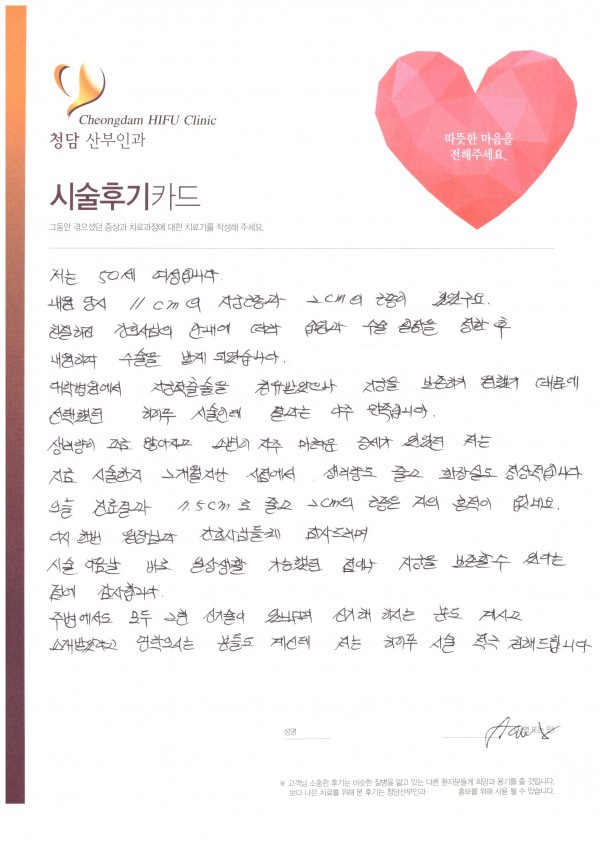 Cheongdam HIFU Clinic
청담 산부인과
따뜻한 마음을
전해주세요.
시술후기카드
그동안 겪으셨던 증상과 치료과정에 대한 치료기를 작성해 주세요.
저는 50세 여성입니다.
내원 당시 11cm의 자궁근종과 2cm의 근종이 있었구요.
친절하신 간호사님의 안내에 따라 입원과 수술 일정을 정한 후
내원하여 수술을 받게 되었습니다.
대학병원에서 자궁적출술을 권유받았으나 자궁을 보존하기 원했기 때문에
선택했던 하이푸 시술인데 결과는 아주 만족입니다.
생리량이 조금 많아지고 소변이 자주 마려운 증세가 있었던 저는
지금 시술한지 2개월지난 시점에서 생리량도 줄고 화장실도 정상적입니다
오늘 진료결과 7.5cm로 줄고 2cm의 근종은 거의 흔적이 없네요.
다시 한번 원장님과 간호사님들께 감사드리며
시술 다음날 바로 일상생활 가능했던 점이나 자궁을 보존할 수 있다는
점에 감사합니다.
주변에서도 모두 그런 신기술이 있냐며 신기해 하시는 분도 계시고
소개받았다고 연락오시는 분들도 계신데 저는 하이푸 시술 적극 권해드립니다
성명
※ 고객님 소중한 후기는 비슷한 질병을 앓고 있는 다른 환자분들게 희망과 용기를 줄 것입니다.
보다 나은 치료를 위해 본 후기는 청담산부인과· 홍보를 위해 사용 될 수 있습니다.